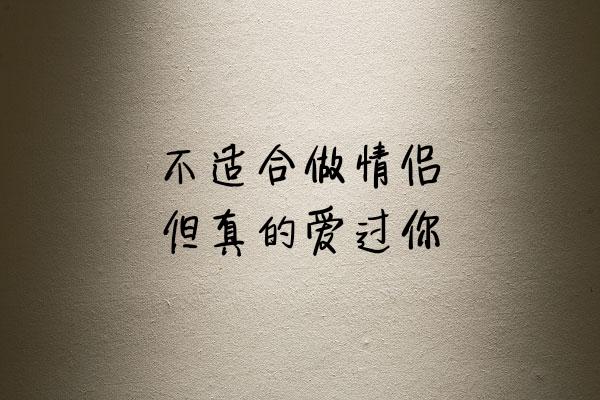 不适合做情侣
但真的爱过你